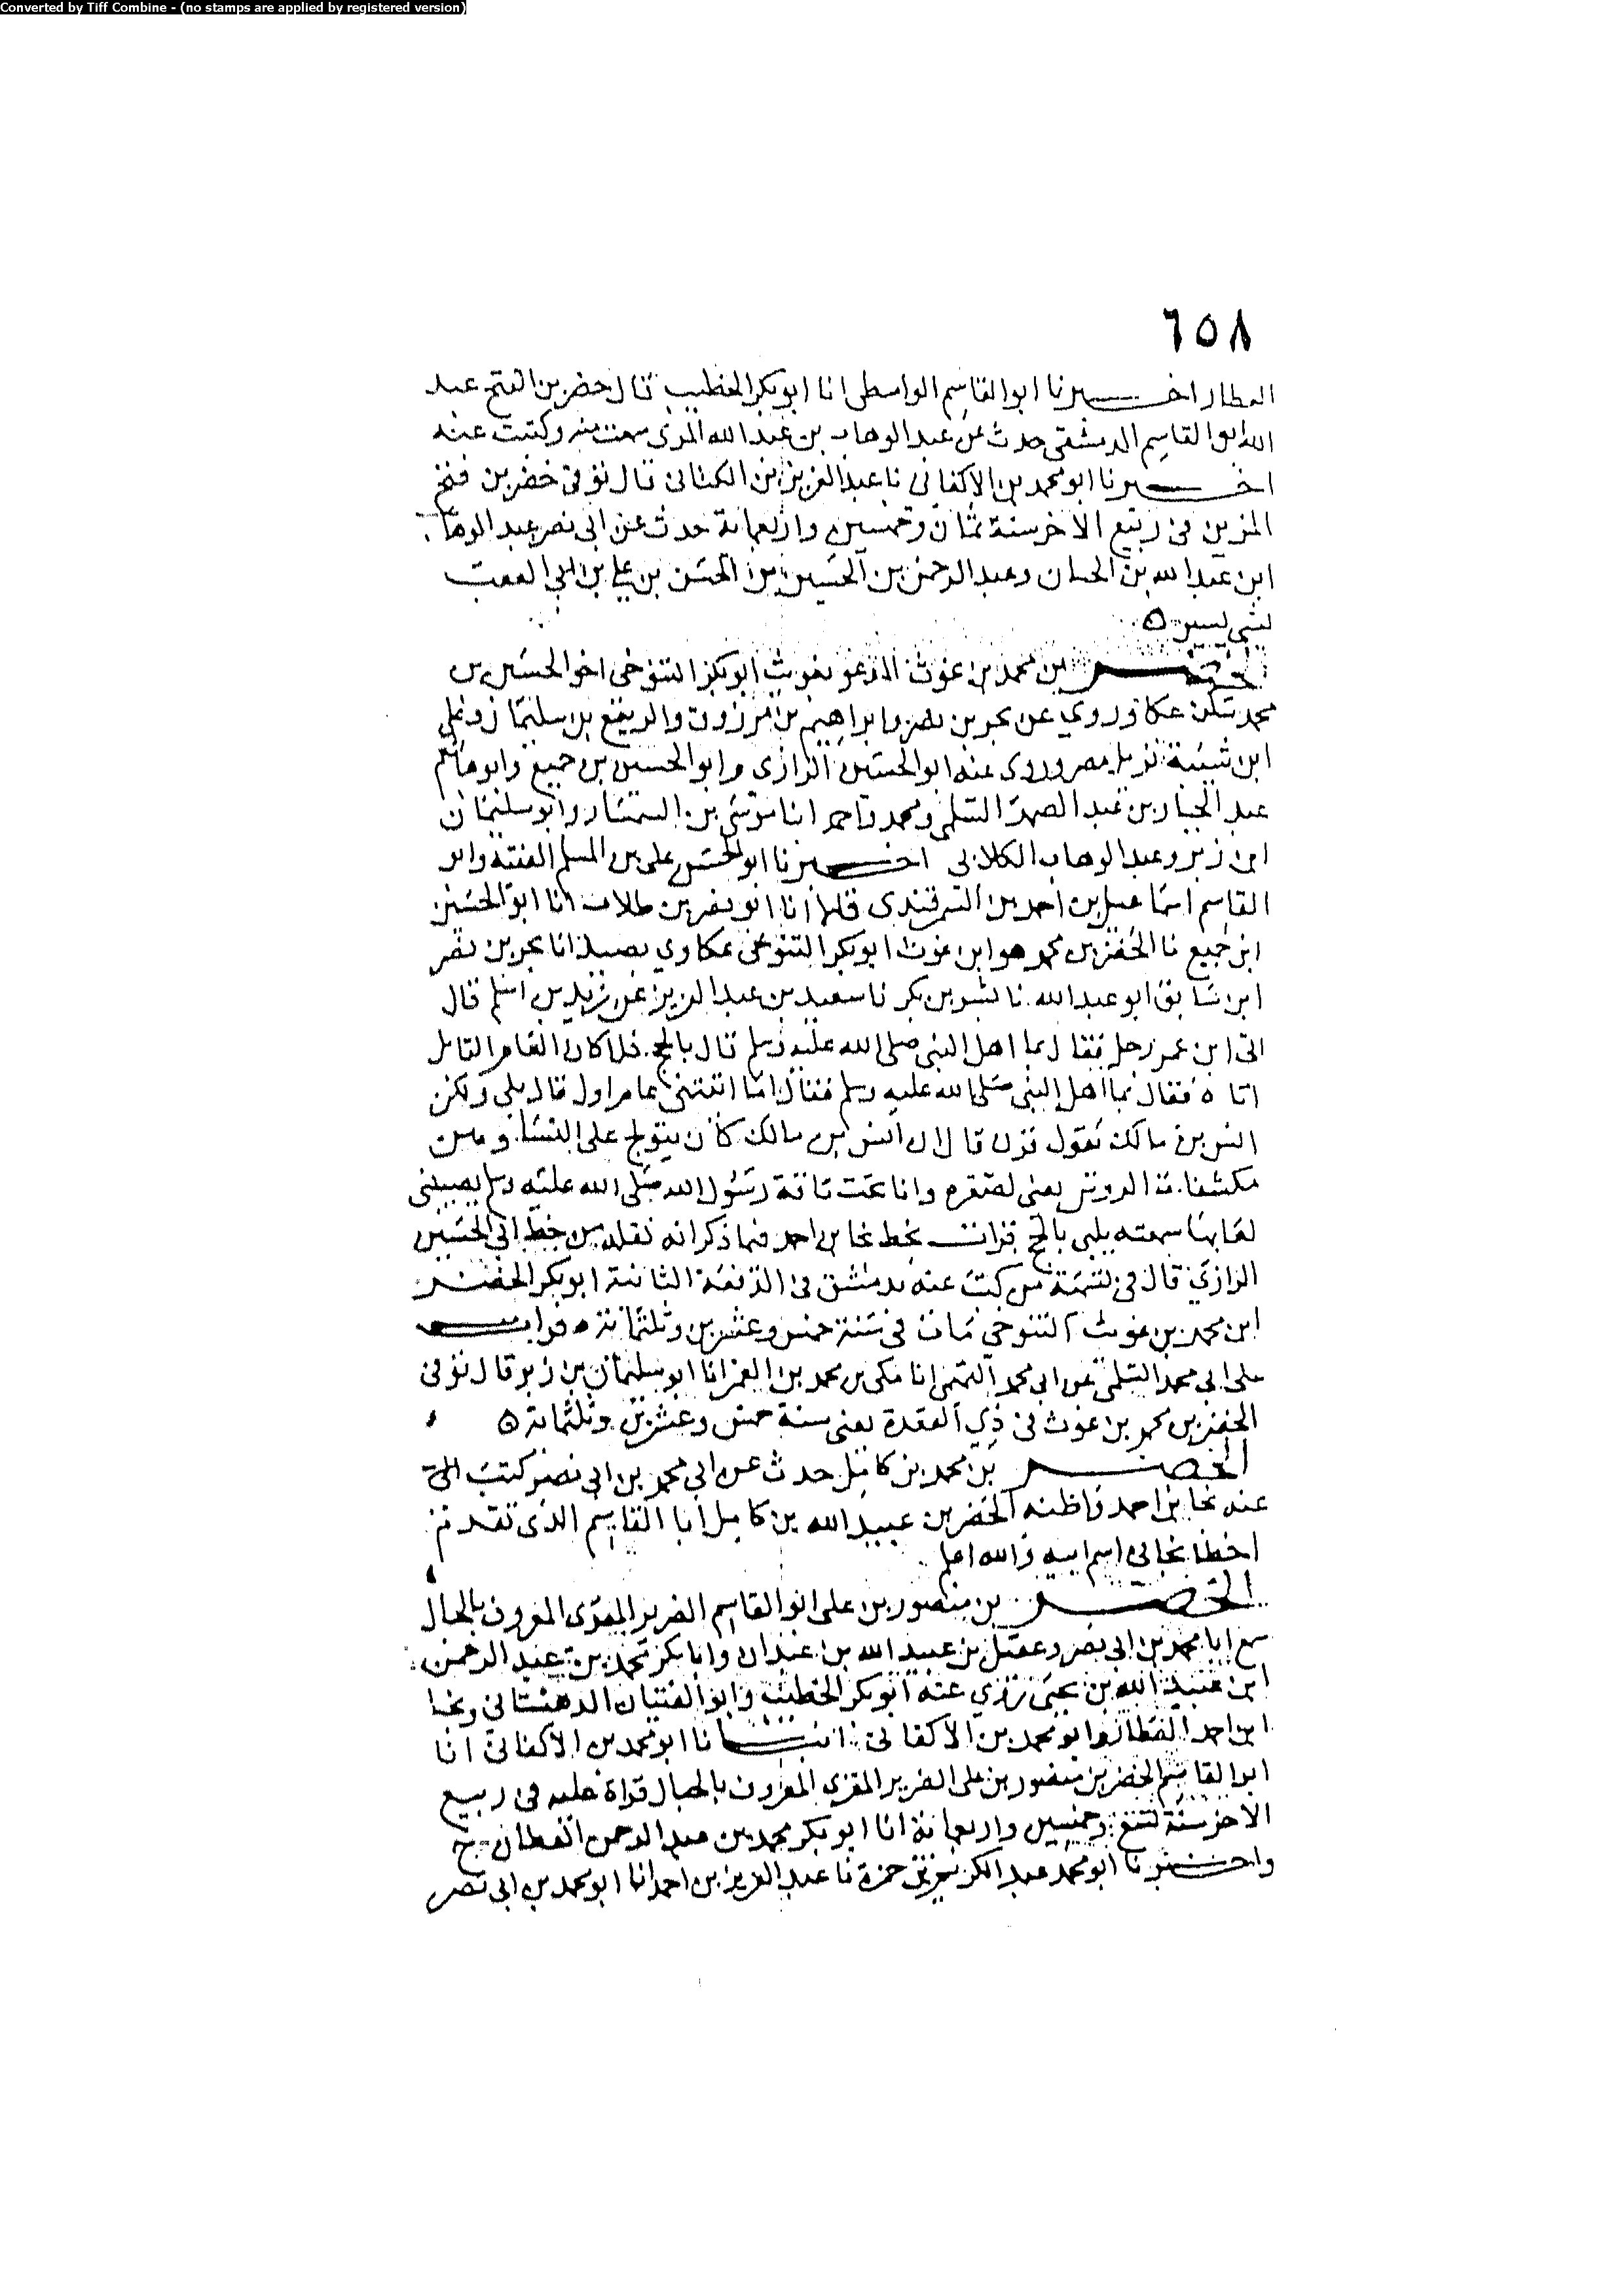 Converted by Tiff Combine - (no stamps are applied by registered version)
٦٥٨
العطار اخبرنا ابو القاسم الواسطي انا ابو بكر الخطيب قال خضر بن الفتح عبد
الله ابو القاسم الدمشقي حدث عن عبد الوهاب بن عبد الله المري سمعت منه وكتبت عنه
اخبرنا ابو محمد بن الاكفاني نا عبد العزيز بن الكتاني قال توفي خضر بن فتح
المزين في ربيع الاخر سنة ثمان وخمسين واربعمائة حدث عن ابي نصر عبد الوهاب
ابن عبد الله بن الحبان وعبد الرحمن بن الحسين بن الحسن بن علي بن ابي العقب
بشي يسير ه
الخضر بن محمد بن غوث المدعو بغويث ابو بكر التنوخي اخو الحسين بن
محمد سكن عكا وروي عن بحر بن نصر وابراهيم بن مرزوق والربيع بن سليمان وعلي
ابن شيبة نزيل مصر وروى عنه ابو الحسين الرازي وابو الحسين بن جميع وابو هاشم
عبد الجبار بن عبد الصمد السلمي ومحمد واحمد ابنا موسى بن السمسار وابو سليمان
ابن زبر وعبد الوهاب الكلابي اخبرنا ابو الحسن علي بن المسلم الفقيه وابو
القاسم اسماعيل بن احمد بن السمرقندي قالا انا ابو نصر بن طلاب انا ابو الحسين
ابن جميع نا الخضر بن محمد هو ابن غوث ابو بكر التنوخي عكاوي بصيدا نا بحر بن نصر
ابن سابق ابو عبد الله نا بشر بن بكر نا سعيد بن عبد العزيز عن زيد بن اسلم قال
اتى ابن عمر رجل فقال بما اهل النبي صلى الله عليه وسلم قال بالحج فلما كان العام القابل
اتاه فقال بما اهل النبي صلى الله عليه وسلم فقال اما اتيتني عام اول قال بلي ولكن
انس بن مالك يقول قرن قال ان انس بن مالك كان يتولج على النساء وهن
مكشفات الروس يعني لصغره وانا تحت ناقة رسول الله صلى الله عليه وسلم يصيبني
لعابها سمعته يلبي بالحج قرات بخط نجا بن احمد فيما ذكر انه نقله من خط ابي الحسين
الرازي قال في تسمية من كتب عنه بدمشق في الدفعة الثانية ابو بكر الخضر
ابن محمد بن غويث التنوخي مات في سنة خمس وعشرين وثلثمائة ه قرات
على ابي محمد السلمي عن ابي محمد التميمي انا مكي بن محمد بن الغمر انا ابو سليمان بن زبر قال توفي
الخضر بن محمد بن غوث في ذي القعدة يعني سنة خمس وعشرين وثلثمائة ه
الخضر بن محمد بن كامل حدث عن ابي محمد بن ابي نصر كتب
عنه نجا بن احمد واظنه الخضر بن عبيد الله بن كامل ابا القاسم الذي تقدم
اخطا نجا في اسم ابيه والله اعلم
الخضر بن منصور بن علي ابو القاسم الضرير المقرى المعروف بالحبال
سمع ابا محمد بن ابي نصر وعقيل بن عبيد الله بن عبدان وابا بكر محمد بن عبد الرحمن
ابن عبيد الله بن يحيى روي عنه ابو بكر الخطيب وابو الفتيان الدهستاني ونجا
ابن احمد العطار وابو محمد بن الاكفاني انبانا ابو محمد بن الاكفاني انا
ابو القاسم الخضر بن منصور بن علي الضرير المقري المعروف بالحبال قراة عليه في ربيع
الاخر سنة تسع وخمسين واربعمائة انا ابو بكر محمد بن عبد الرحمن القطان ح
واخبرنا ابو محمد عبد الكريم بن حمزة نا عبد العزيز بن احمد انا ابو محمد بن ابي نصر